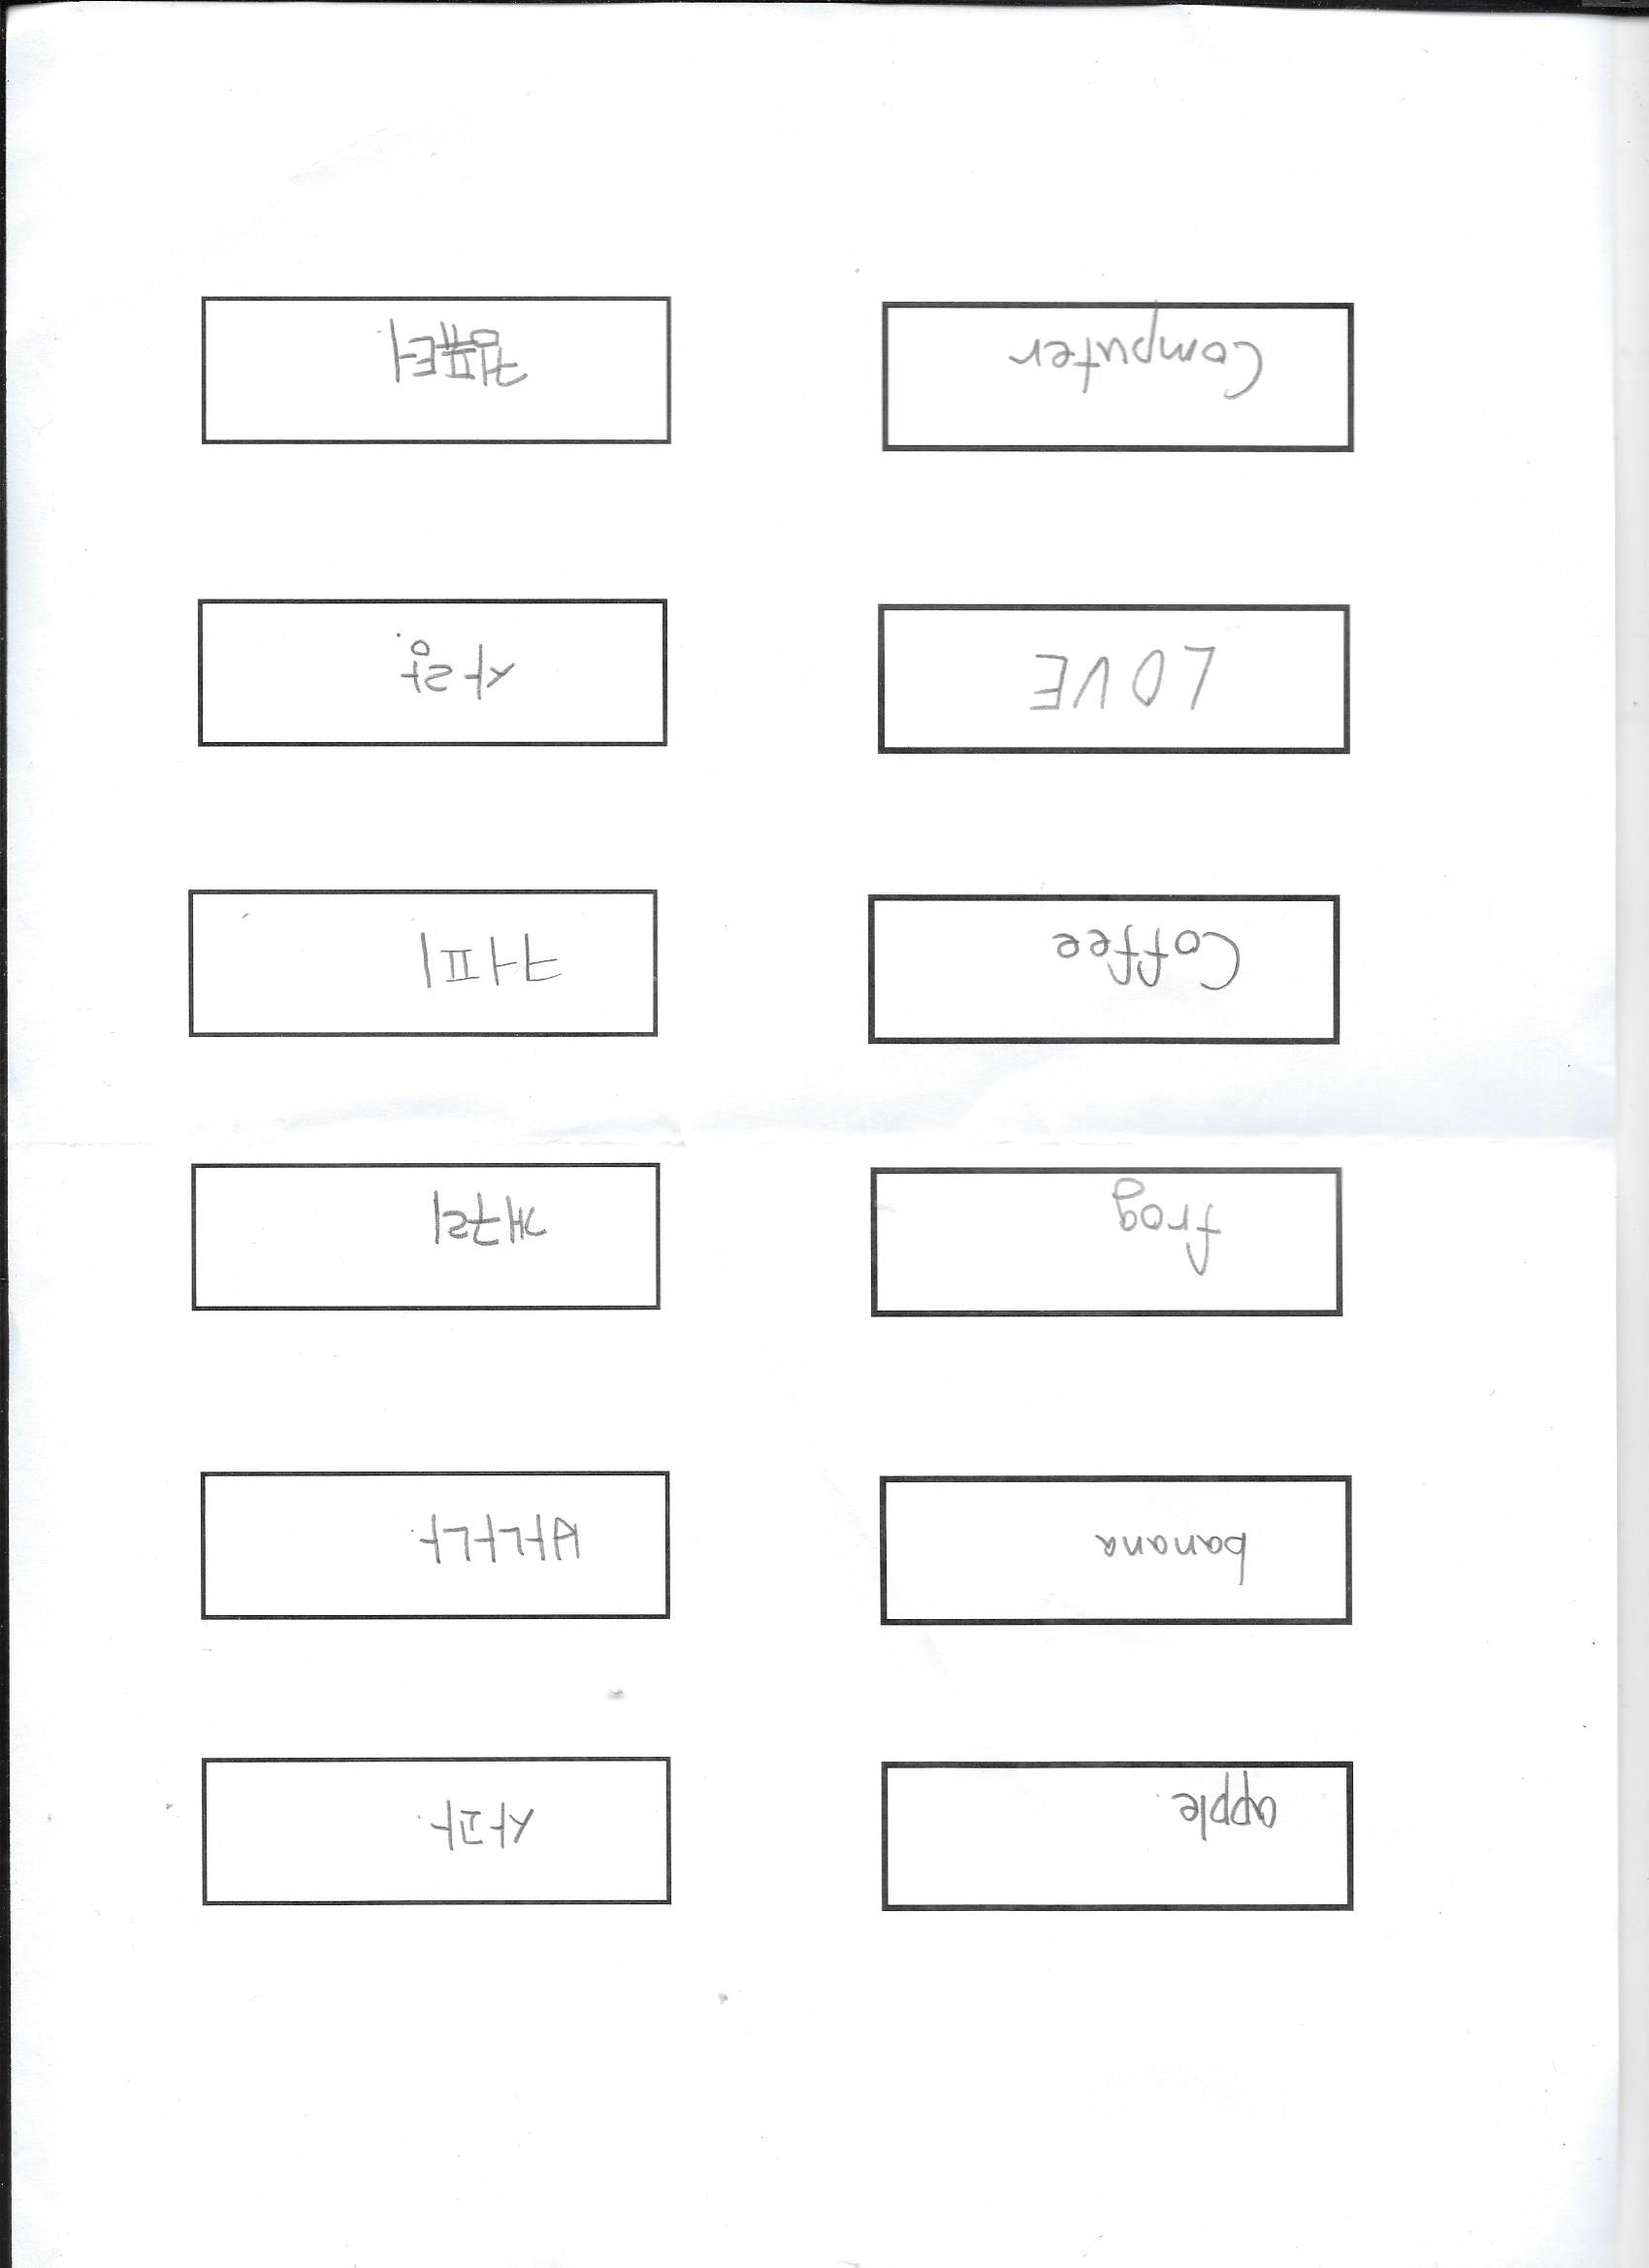 apple. 사과.
banana 바나나.
frog 개구리
Coffee 커피
LOVE 사랑.
Computer 컴퓨터.